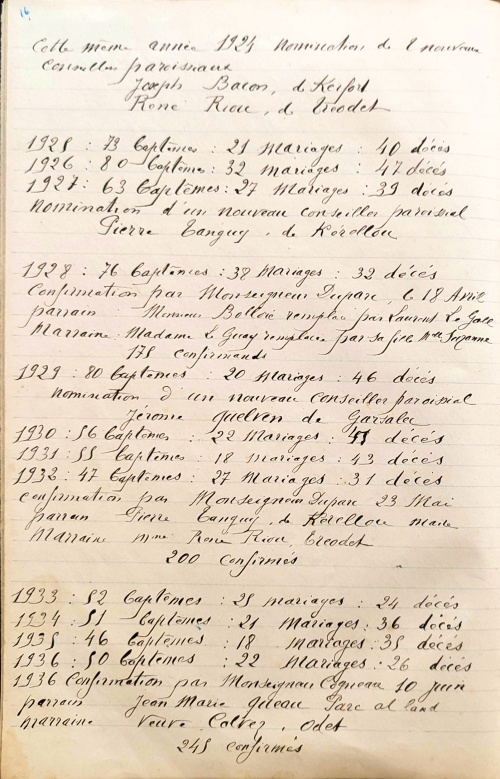 16
Cette même année 1924 nomination de 2 nouveaux
Conseillers paroissiaux
Joseph Bacon, de Kerfort
René Riou, de Treodet
1925 : 73 baptêmes : 21 Mariages : 40 décés
1926 : 80 baptêmes : 32 mariages : 47 décés
1927 : 63 Baptêmes : 27 Mariages : 39 décés
Nomination d'un nouveau conseiller paroissial
Pierre Tanguy, de Kérellou
1928 : 76 baptêmes : 38 Mariages : 32 décés
Confirmation par Monseigneur Duparc, le 18 Avril
parrain : Monsieur Bolloré remplacé par Laurent Le Gall
Marraine : Madame Le Guay remplacée par sa fille Mlle Suzanne
175 confirmands
1929 : 80 baptêmes : 20 Mariages : 46 décés
nomination d'un nouveau conseiller paroissial
Jérome Quelven de Garsalec
1930 : 56 baptêmes : 22 Mariages : décés
1931 : 55 baptêmes : 18 Mariages : 43 décés
1932 : 47 Baptêmes : 27 Mariages : 31 décés
Confirmation par Monseigneur Duparc 23 Mai
parrain Pierre Tanguy, de Kérellou maire
Marraine Mme René Riou, Treodet
200 confirmés
1933 : 52 baptêmes : 25 mariages : 24 décés
1934 : 51 baptêmes : 21 Mariages : 36 décés
1935 : 46 baptêmes : 18 Mariages : 35 décés
1936 : 50 baptêmes : 22 Mariages : 26 décés
1936 Confirmation par Monseigneur Cogneau 10 juin
parrain Jean Marie Parc al land
Marraine Veuve Calvez, Odet
245 confirmés